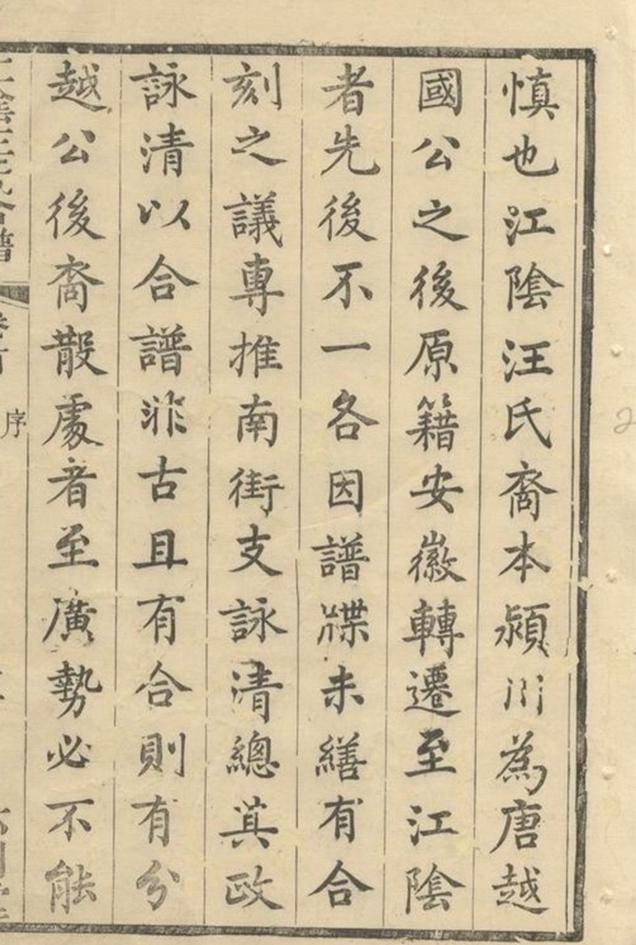 慎也江陰汪氏裔本潁川為唐越
國公之後原籍安徽轉遷至江陰
者先後不一各因譜牒未繕有合
刻之議專推南街支詠清總其政
詠清以合譜非古且有合則有分
越公後裔散處者至廣勢必不能
序